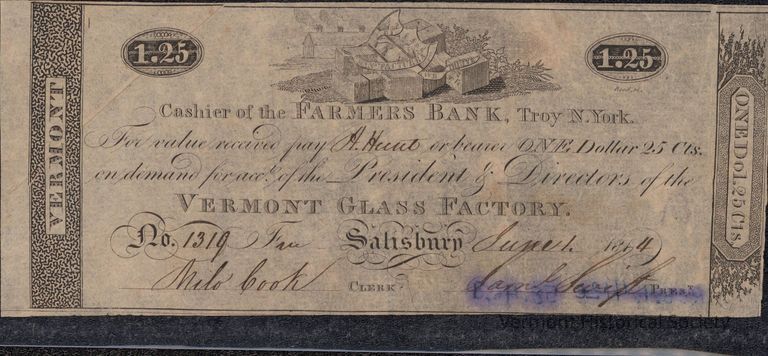 1.25
1.25
VERMONT
Cashier of the FARMERS BANK, Troy N.York.
For value received pay H. Hunt or bearer ONE Dollar 25 Cts.
on demand for acct. of the President & Directors of the
VERMONT GLASS FACTORY.
No. 1319 Salisbury June 1. 1814
Milo Cook CLERK Saml Swift PREST
ONE Dol. 25 Cts
Vermont Historical Society